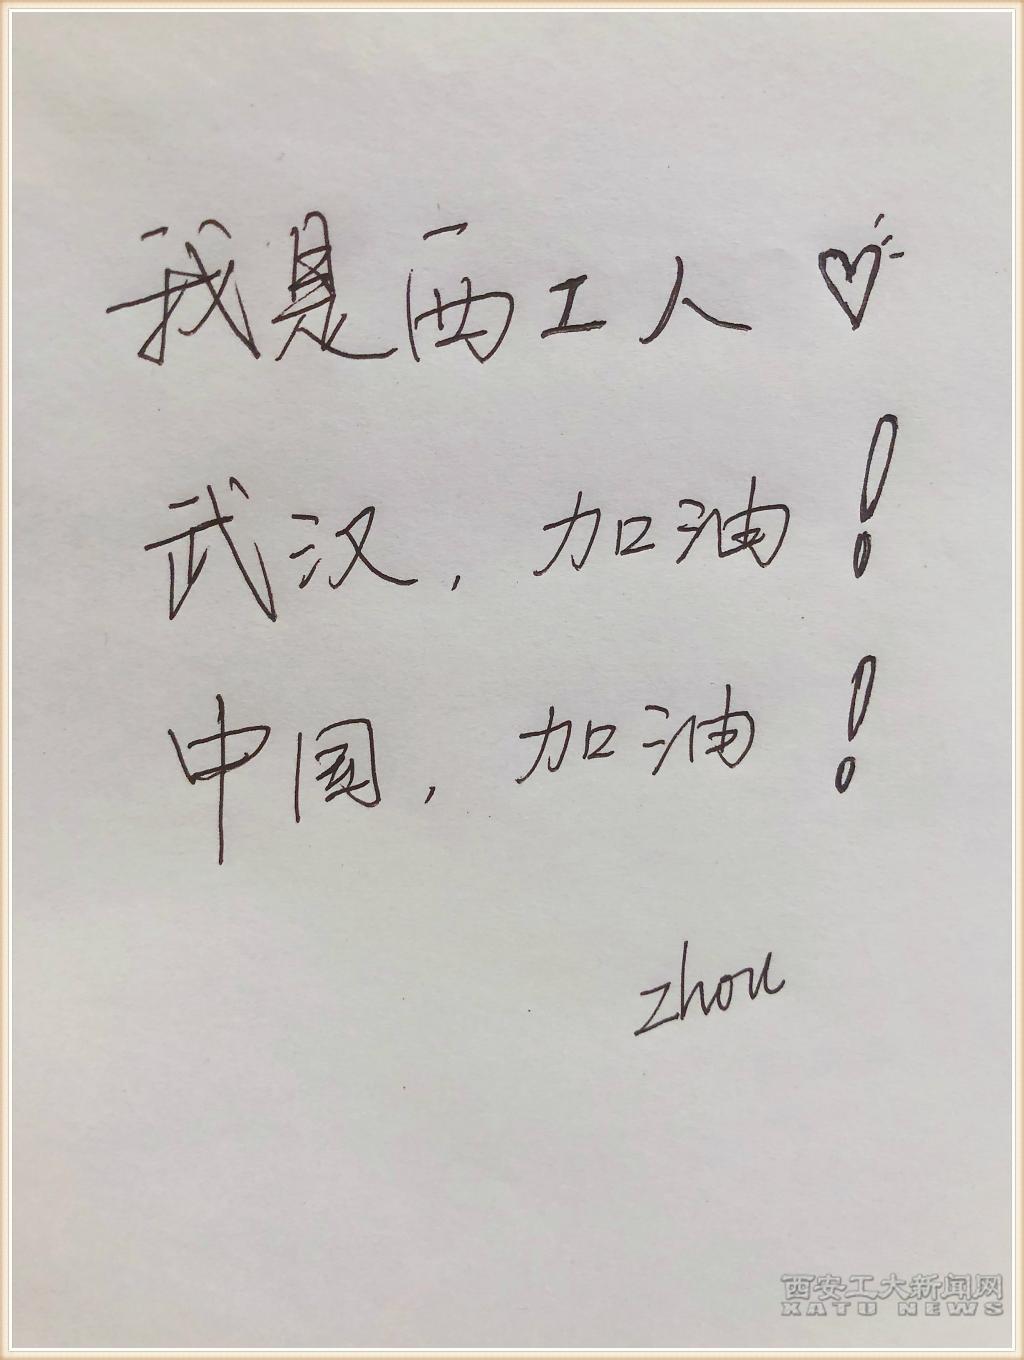 我是西工人♡
武汉，加油！
中国，加油！
zhou
西安工大新闻网
XATU NEWS